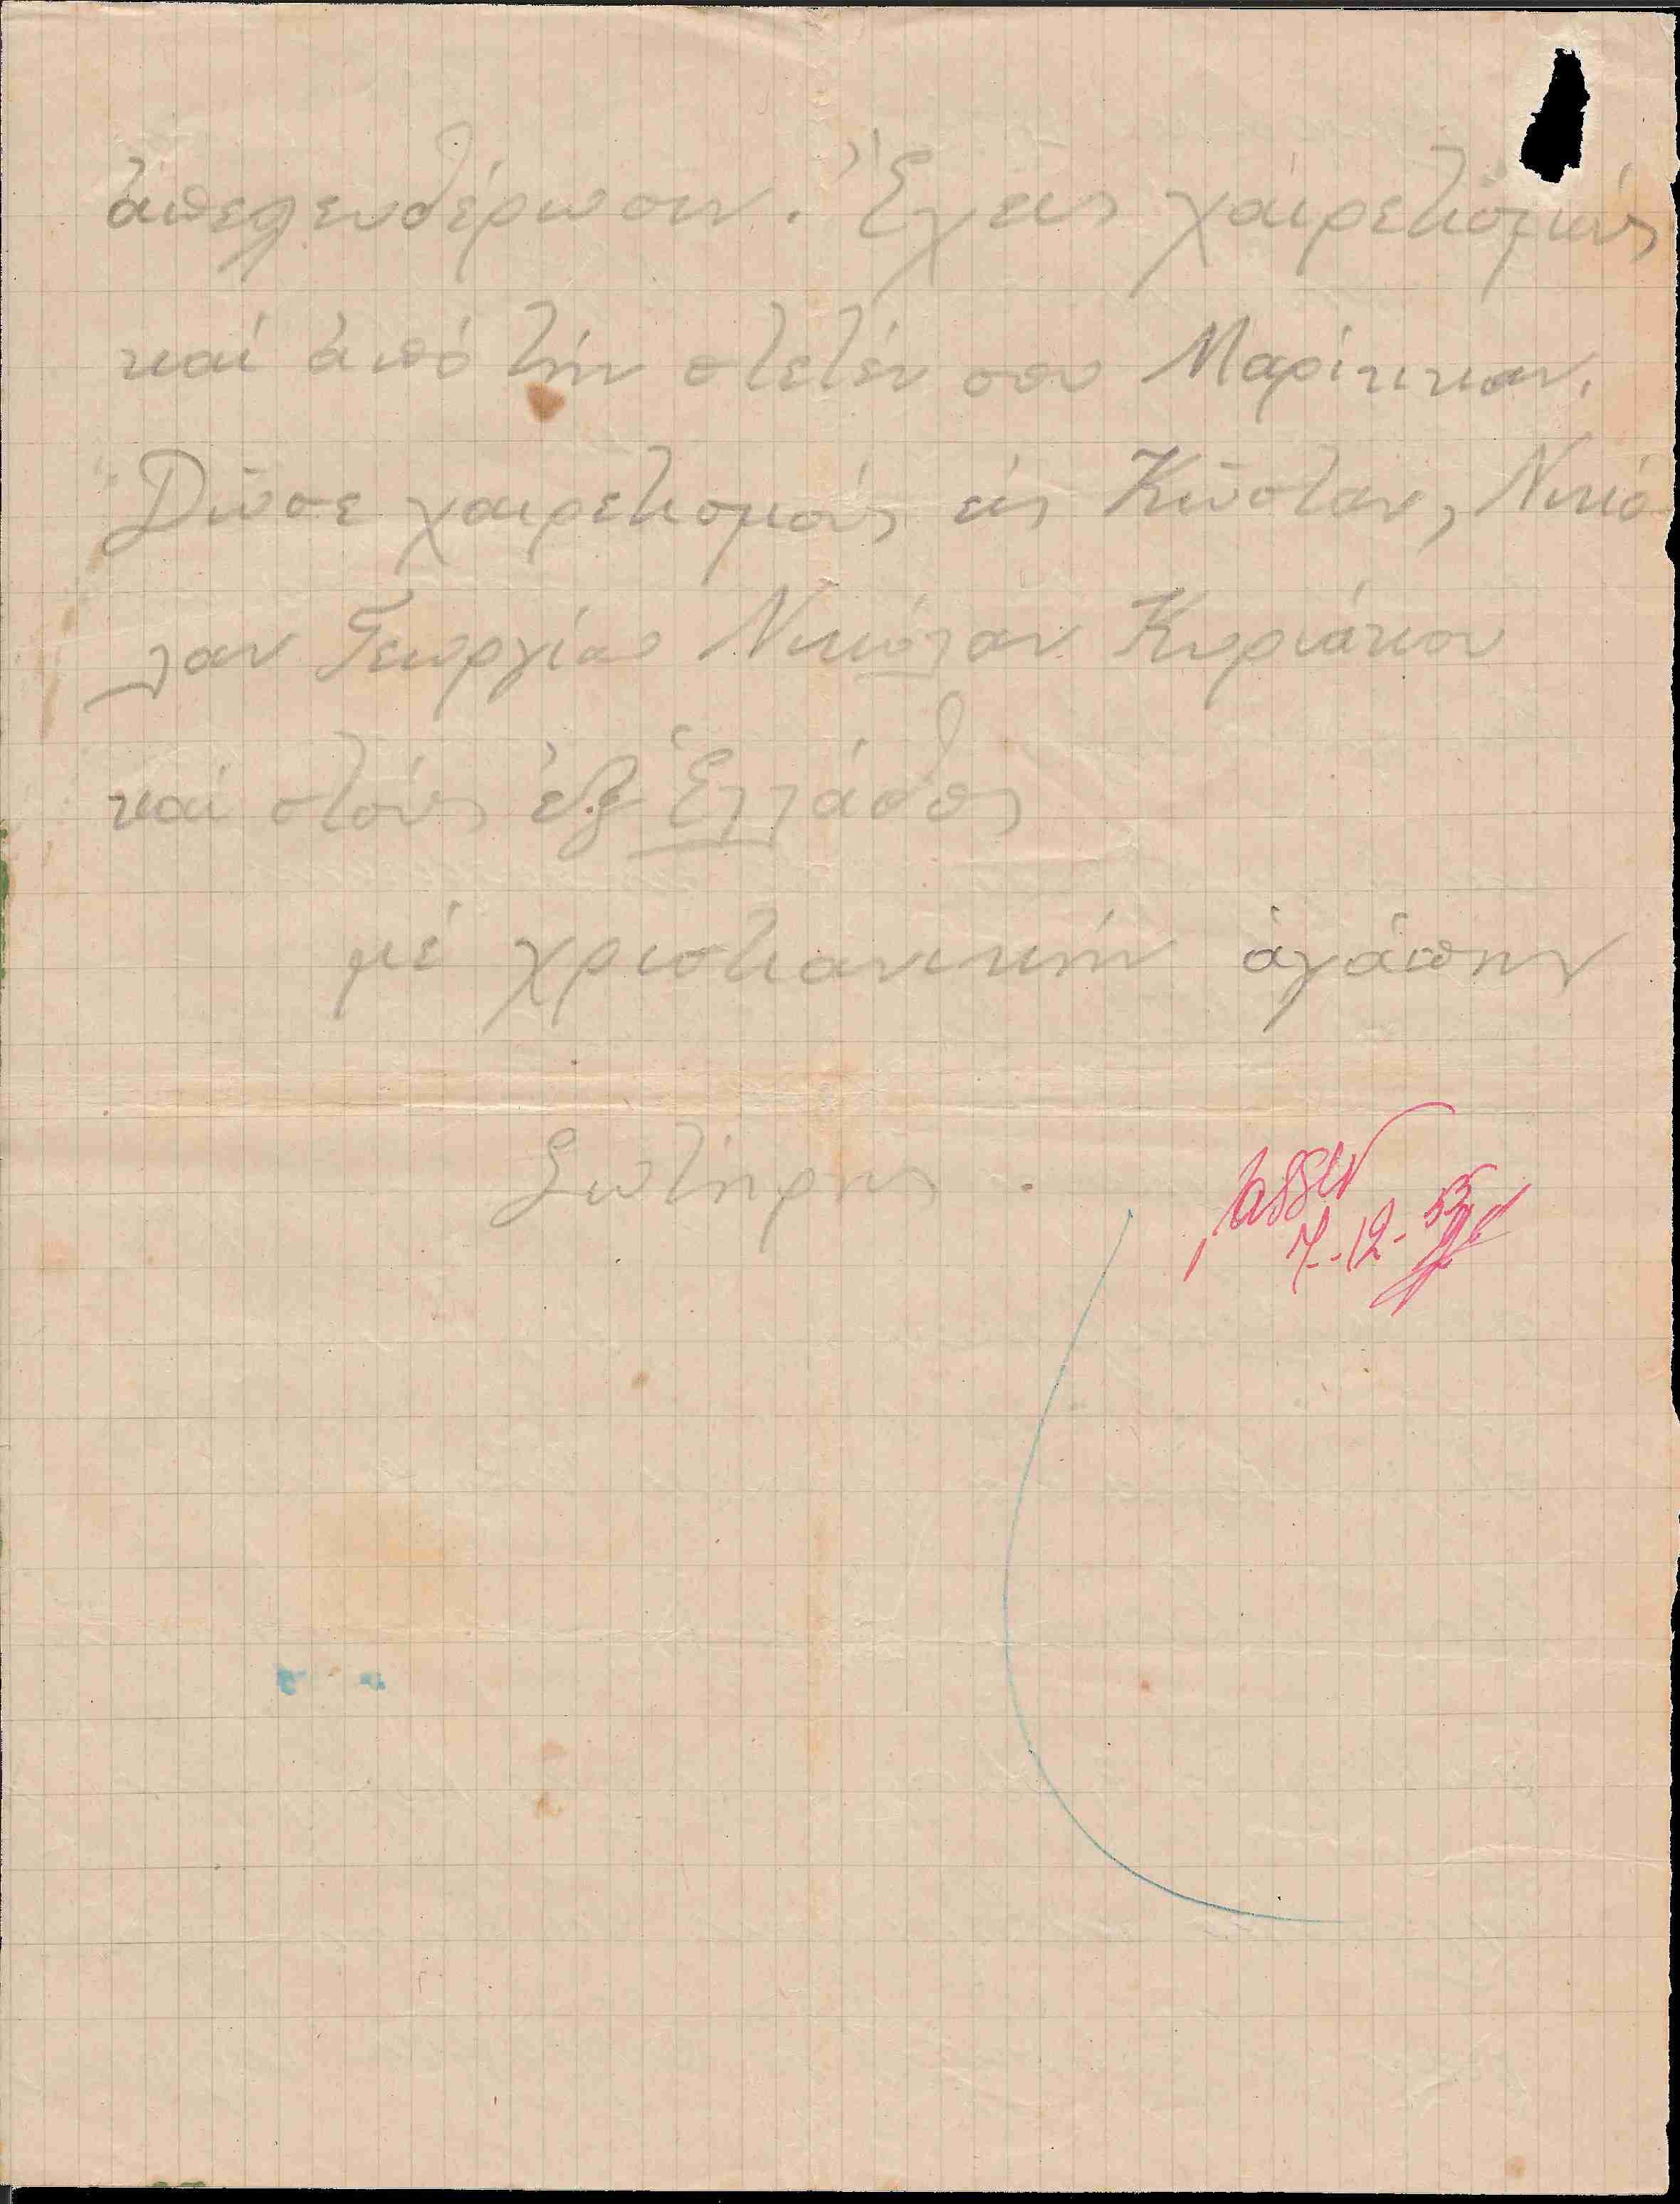 ἀπελευθέρωσιν. Ἔχεις χαιρετισμούς
καί ἀπό τήν στετέν σου Μαρίτκαν.
Δῶσε χαιρετισμούς εἰς Κῶσταν, Νικό
λαν Γεωργίου Νικόλαν Κυριάκου
καί στούς ἐξ Ἑλλάδος
μέ χριστιανικήν ἀγάπην
Σωτήρης.
7-12-55